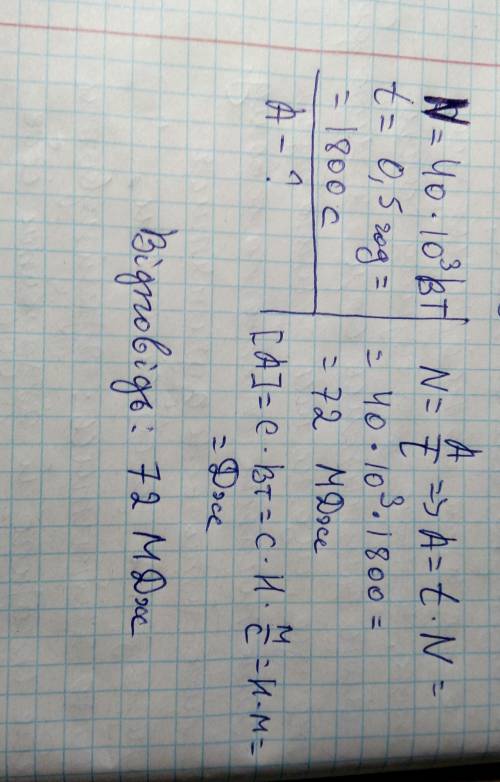 N = 40·10³ Вт
t = 0,5 год =
= 1800 с
A - ?
N = A/t => A = t·N =
= 40·10³·1800 =
= 72 МДж
[A] = с·Вт = с·Н·м/с = Н·м =
= Дж
Відповідь: 72 МДж